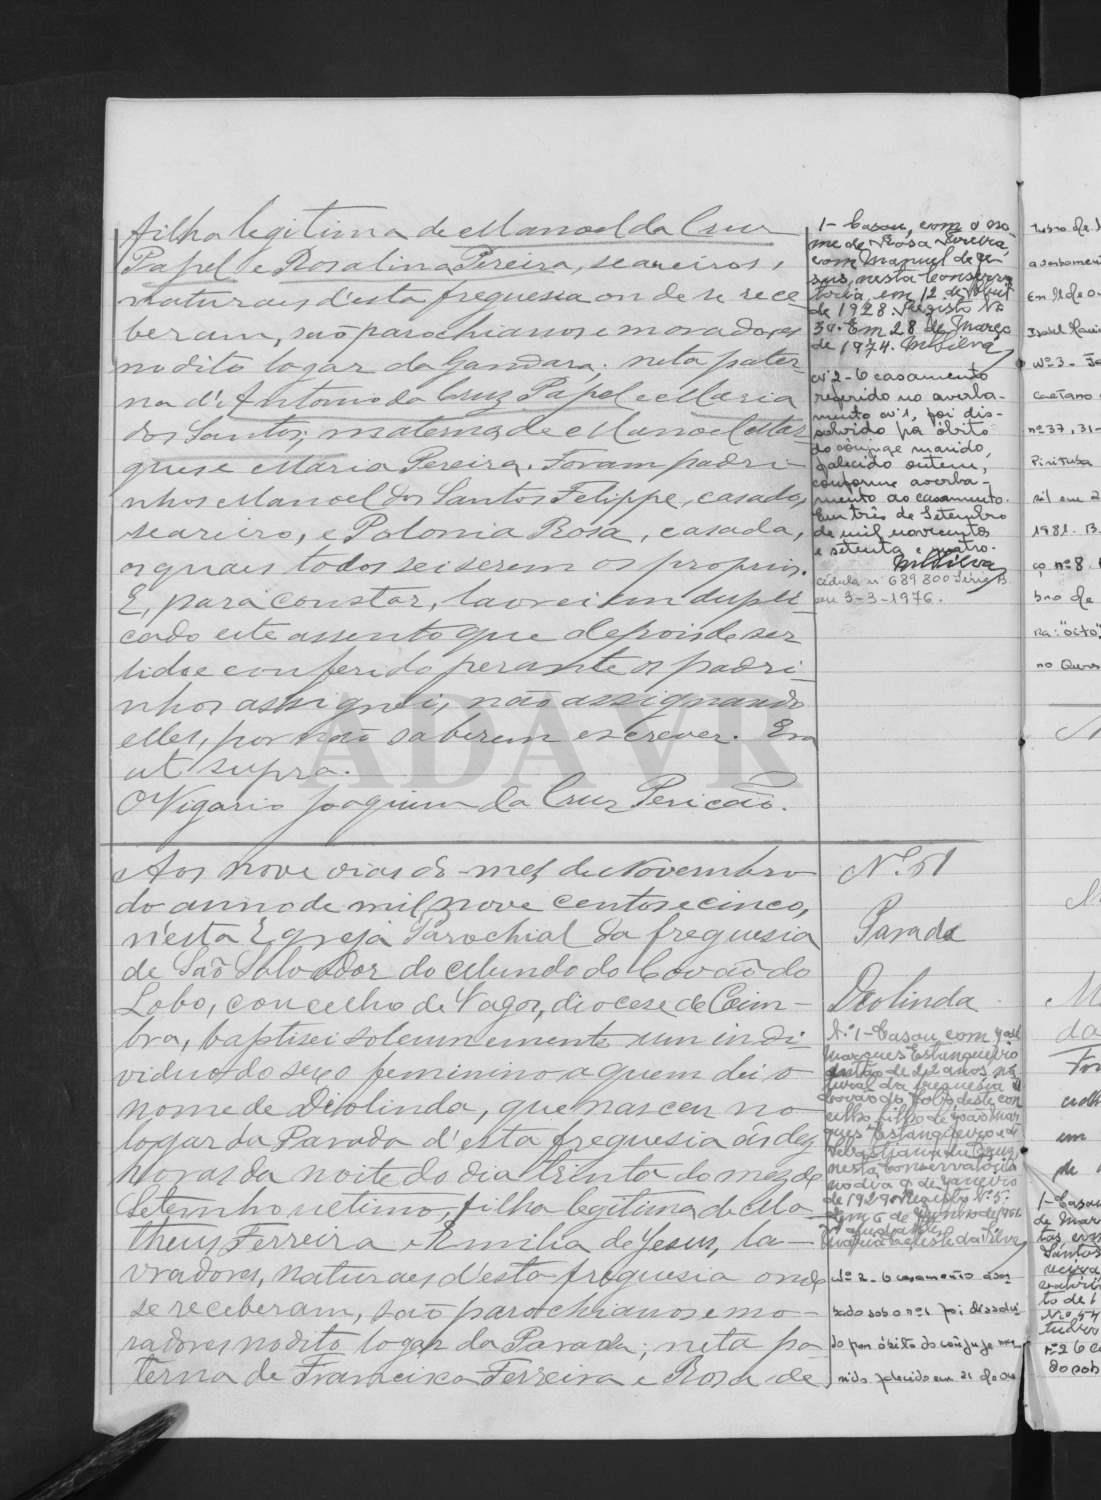 filha legitima de Manoel da Cruz
Papel e Rosalina Pereira, seareiros,
naturaes d'esta freguesia onde se rece
beram, são parochianos e moradores
no dito logar da Gandara; neta pater
na d'Antonio da Cruz Papel e Maria
dos Santos; materna de Manoel Mar
ques e Maria Pereira. Foram padri-
nhos Manoel dos Santos Felippe, casado,
seareiro, e Polonia Rosa, casada,
os quaes todos sei serem os proprios.
E, para constar, lavrei em dupli
cado este assento que depois de ser
lido e conferido perante os padri
nhos assignei, não assignando
elles, por não saberem escrever. Era
ut supra.
O Vigario Joaquim da Cruz Pericão.
1- Casou, com o no-
me de Rosa Pereira
com Manuel de Je
sus, nesta Conserva
toria, em 12 de
de 1928. Registo Nº
34. Em 28 de Março
de 1974. MSilva
Nº 2 - O casamento
referido no averba-
mento nº 1, foi dis-
solvido por óbito
do cônjuge marido,
falecido ontem,
conforme averba-
mento ao casamento.
Em três de Setembro
de mil novecentos
e setenta e quatro.
MSilva
Cédula nº 689800 Série B
em 3-3-1976.
Aos nove dias do mez de Novembro
do anno de mil nove centos e cinco,
n'esta Egreja Parochial da freguesia
de São Salvador do Mundo do Covão do
Lobo, concelho de Vagos, diocese de Coim-
bra, baptisei solemnemente um indi-
viduo do sexo feminino a quem dei o
nome de Diolinda, que nasceu no
logar da Parada d'esta freguesia ás dez
horas da noite do dia trinta do mez de
Setembro ultimo, filha legitima de Ma-
theus Ferreira e Emilia de Jesus, la-
vradores, naturaes d'esta freguesia onde
se receberam, são parochianos e mo-
radores no dito logar da Parada; neta pa-
terna de Francisco Ferreira e Rosa de
Nº 51
Parada
Diolinda
N.º 1- Casou com
Marques Estanqueiro
de 22 anos, na
tural da freguesia de
Covão do Lobo, deste con
celho, filho de João Mar
ques Estanqueiro e de
Sebastiana da Cruz,
nesta Conservatória
no dia 9 de Janeiro
de 1929. Registo Nº 5.
Em 6 de
O ajudante
da Silva
Nº 2 - O casamento aver
bado sob o nº 1 foi dissolvi
do por óbito do cônjuge ma
rido, falecido em 21 de
ADAVR